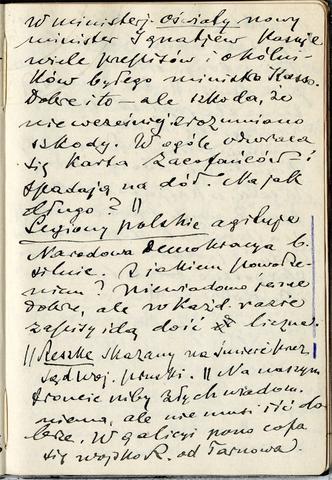 W ministerj. Oświaty nowy
minister Ignatjew kasuje
wiele przepisów i okólni-
ków byłego ministra Kasso.
Dobre i to – ale szkoda, że
nie wcześniej zrozumiano
szkody. W ogóle odwraca
się karta zacofańców i
spadają na dół. Na jak
długo? ||
Legiony polskie agituje
Narodowa Demokracya b.
silnie. Z jakiem powodze-
niem? Niewiadomo jeszcze
dobrze, ale w każd. razie
zapisy idą dość liczne.
|| Reszke skazany na śmierć przez
sąd woj. pruski. || Na naszym
froncie niby złych wiadom.
niema, ale nie musi iść do-
brze. W Galicyi pono cofa
się wojsko R. od Tarnowa.